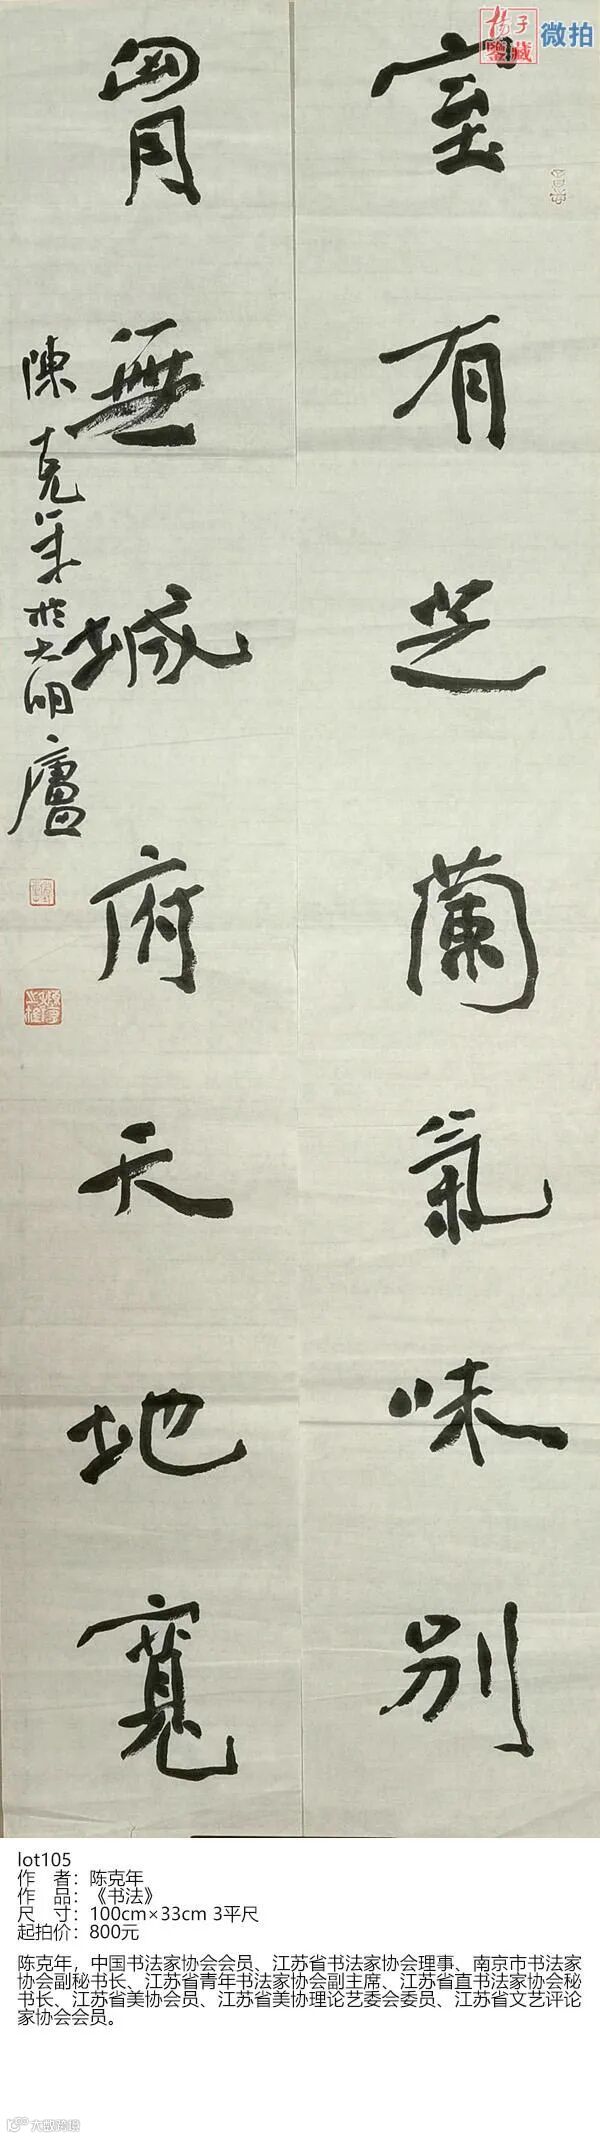 揚子
鑒藏
微拍
室有芝蘭氣味別
胷無城府天地寬
陳克年於大明廬
lot105
作 者：陈克年
作 品：《书法》
尺 寸：100cm×33cm 3平尺
起拍价：800元
陈克年，中国书法家协会会员、江苏省书法家协会理事、南京市书法家
协会副秘书长、江苏省青年书法家协会副主席、江苏省直书法家协会秘
书长、江苏省美协会员、江苏省美协理论艺委会委员、江苏省文艺评论
家协会会员。
大数跨境